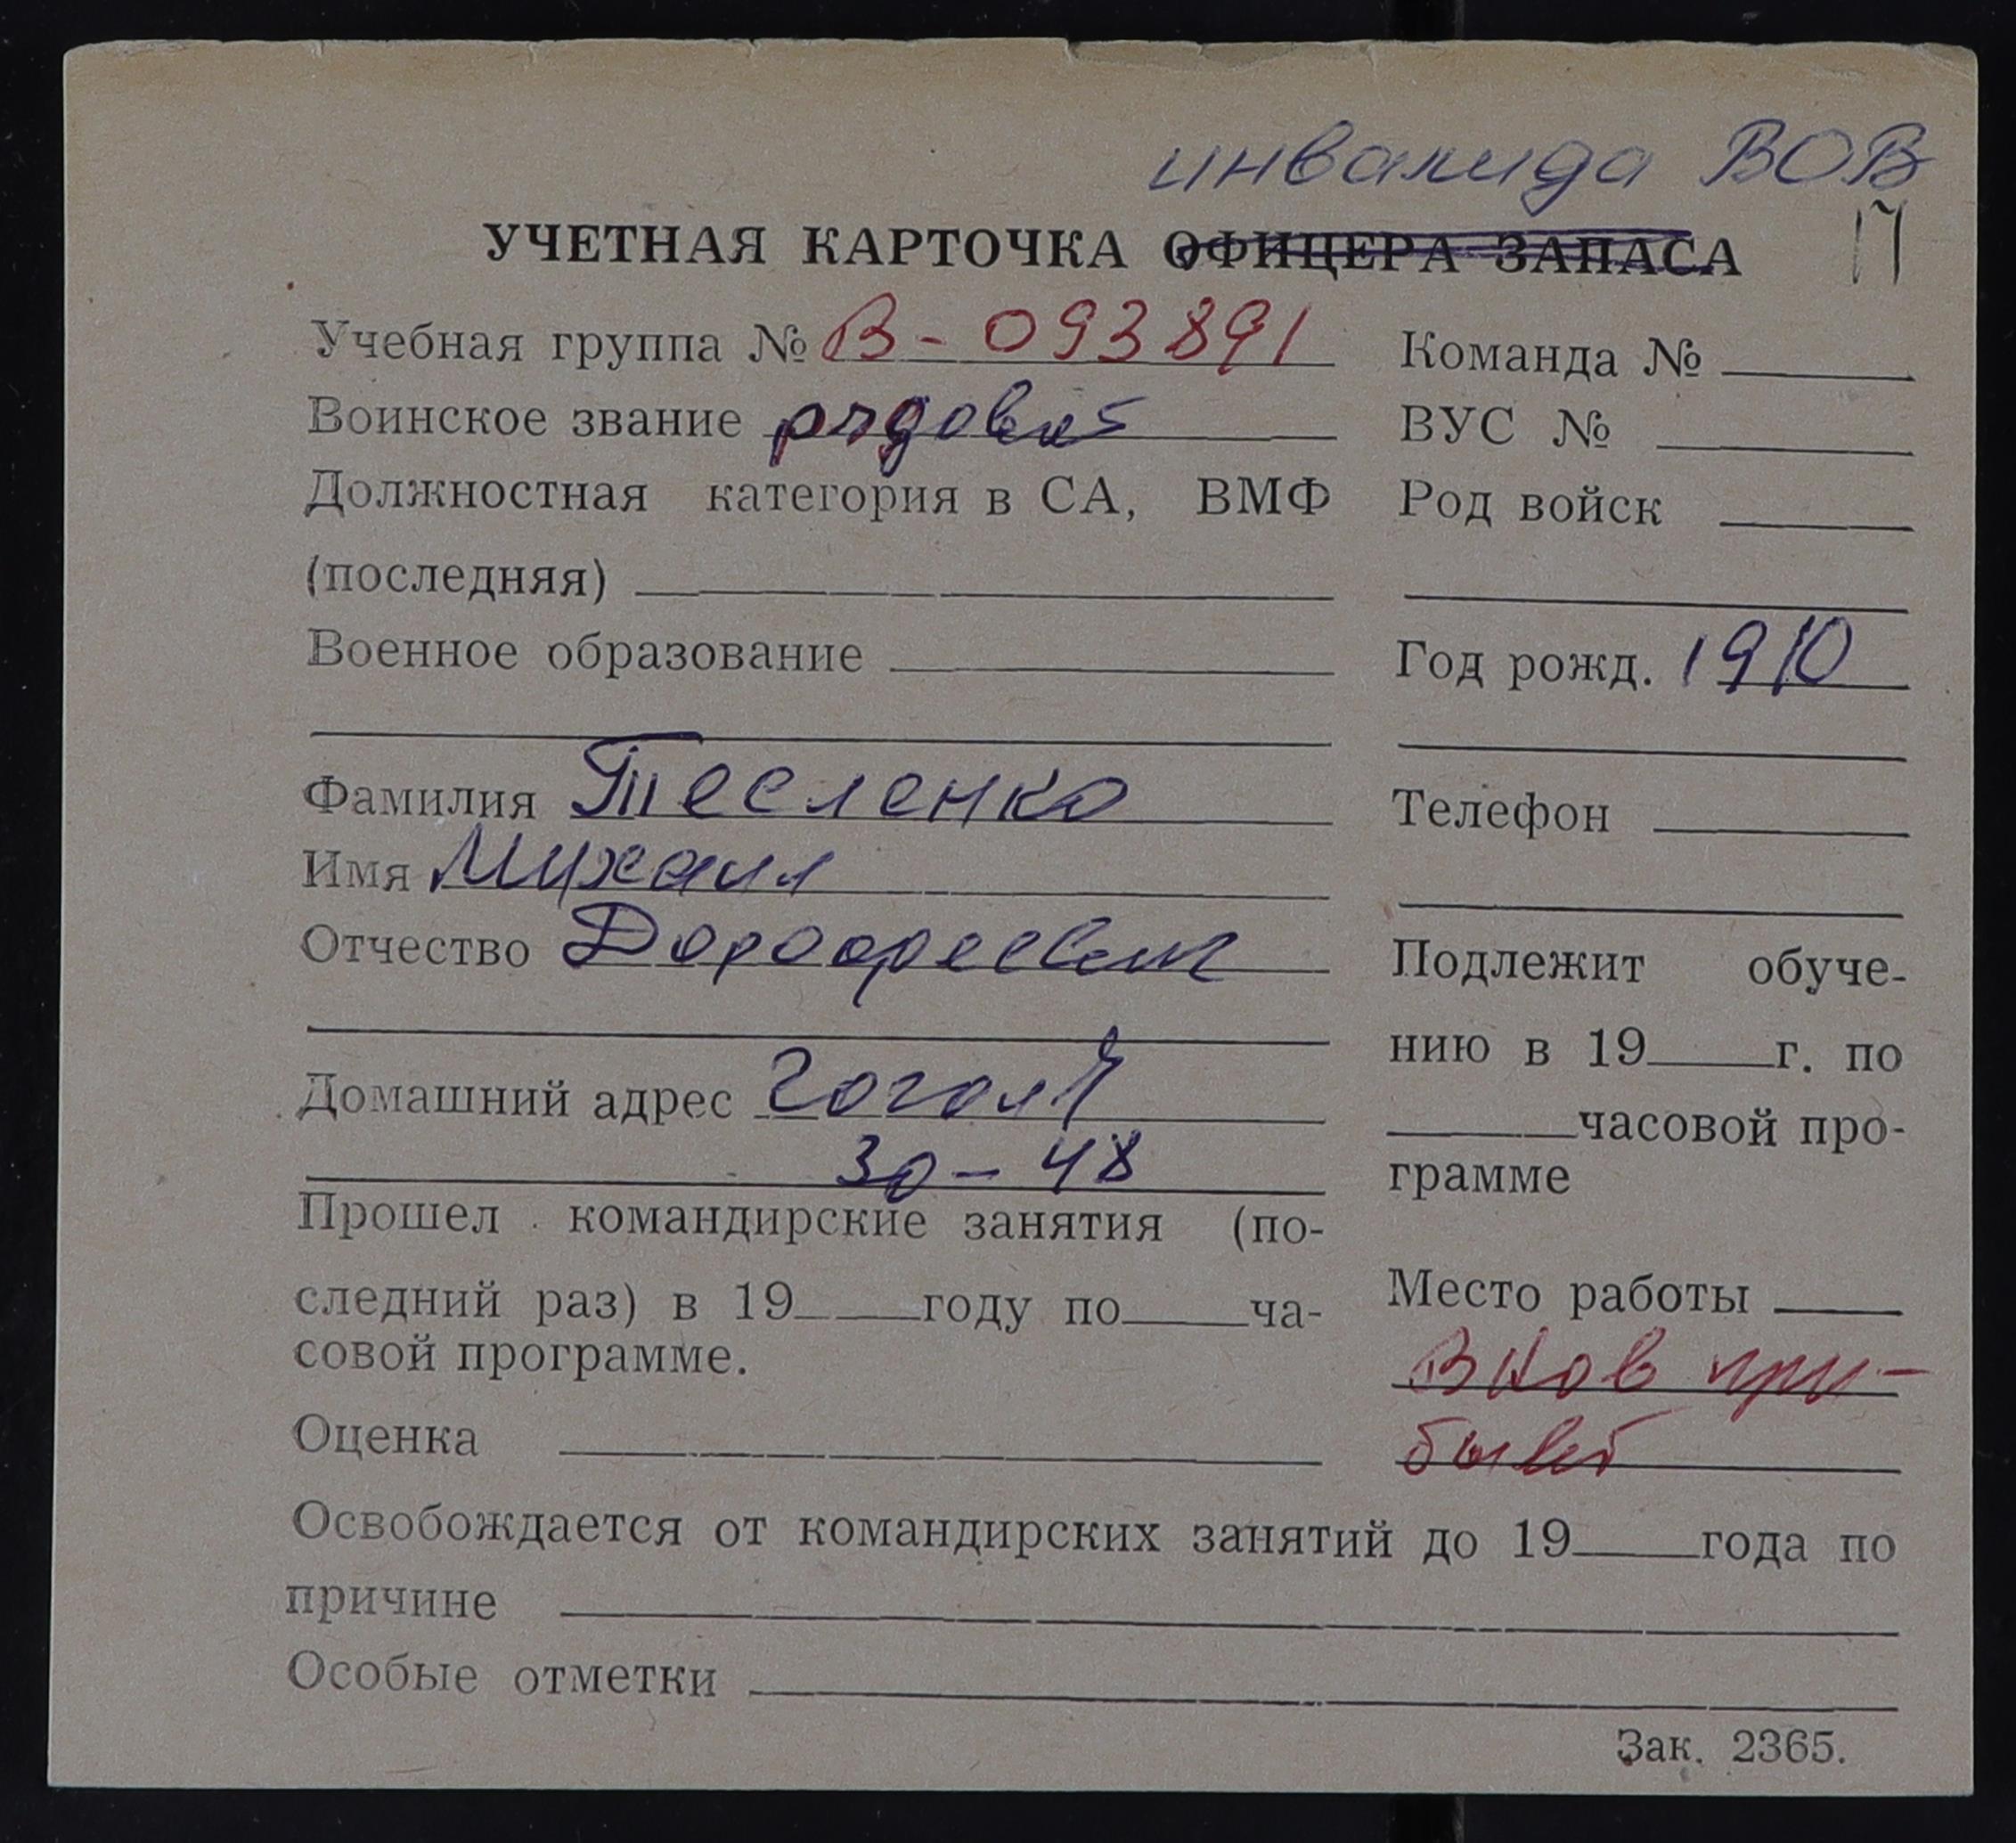 инвалида ВОВ
УЧЕТНАЯ КАРТОЧКА ОФИЦЕРА ЗАПАСА 17
Учебная группа № В-093891
Воинское звание рядовой
Должностная категория в СА, ВМФ
(последняя)
Военное образование
Фамилия Тесленко
Имя Михаил
Отчество Дорофеевич
Домашний адрес Гоголя
30-48
Прошел командирские занятия (по-
следний раз) в 19 году по ча-
совой программе.
Оценка
Команда №
ВУС №
Род войск
Год рожд. 1910
Телефон
Подлежит обуче-
нию в 19 г. по
часовой про-
грамме
Место работы
Вновь при-
бывш
Освобождается от командирских занятий до 19 года по
причине
Особые отметки
Зак. 2365.